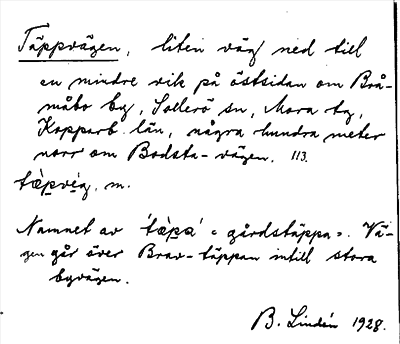 Täppvägen, liten väg ned till
en mindre vik på östsidan om Brå-
måbo by, Sollerö sn, Mora tg,
Kopparb. län, några hundra meter
norr om Bodsta-vägen. 113.
tæ̀pvég, m.
Namnet av 'tæ̀pa' = gårdstäppa =. Vä-
gen går över Brav-täppan intill stora
byvägen.
B. Lindén 1928.